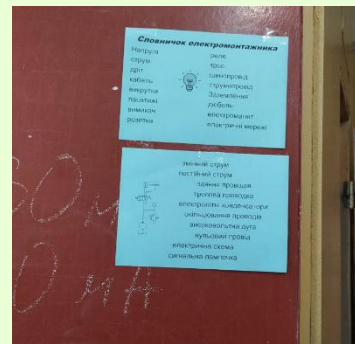 Словничок електромонтажника
Напруга
струм
дріт
кабель
викрутка
пасатижі
вимикач
розетка
реле
трос
шинопровід
струмопровід
Заземлення
дюбель
електромагніт
електричні мережі
змінний струм
постійний струм
паяння проводів
тросова проводка
електролітні конденсатори
окільцювання проводів
високовольтна дуга
нульовий провід
електрична схема
сигнальна лампочка
0 мА